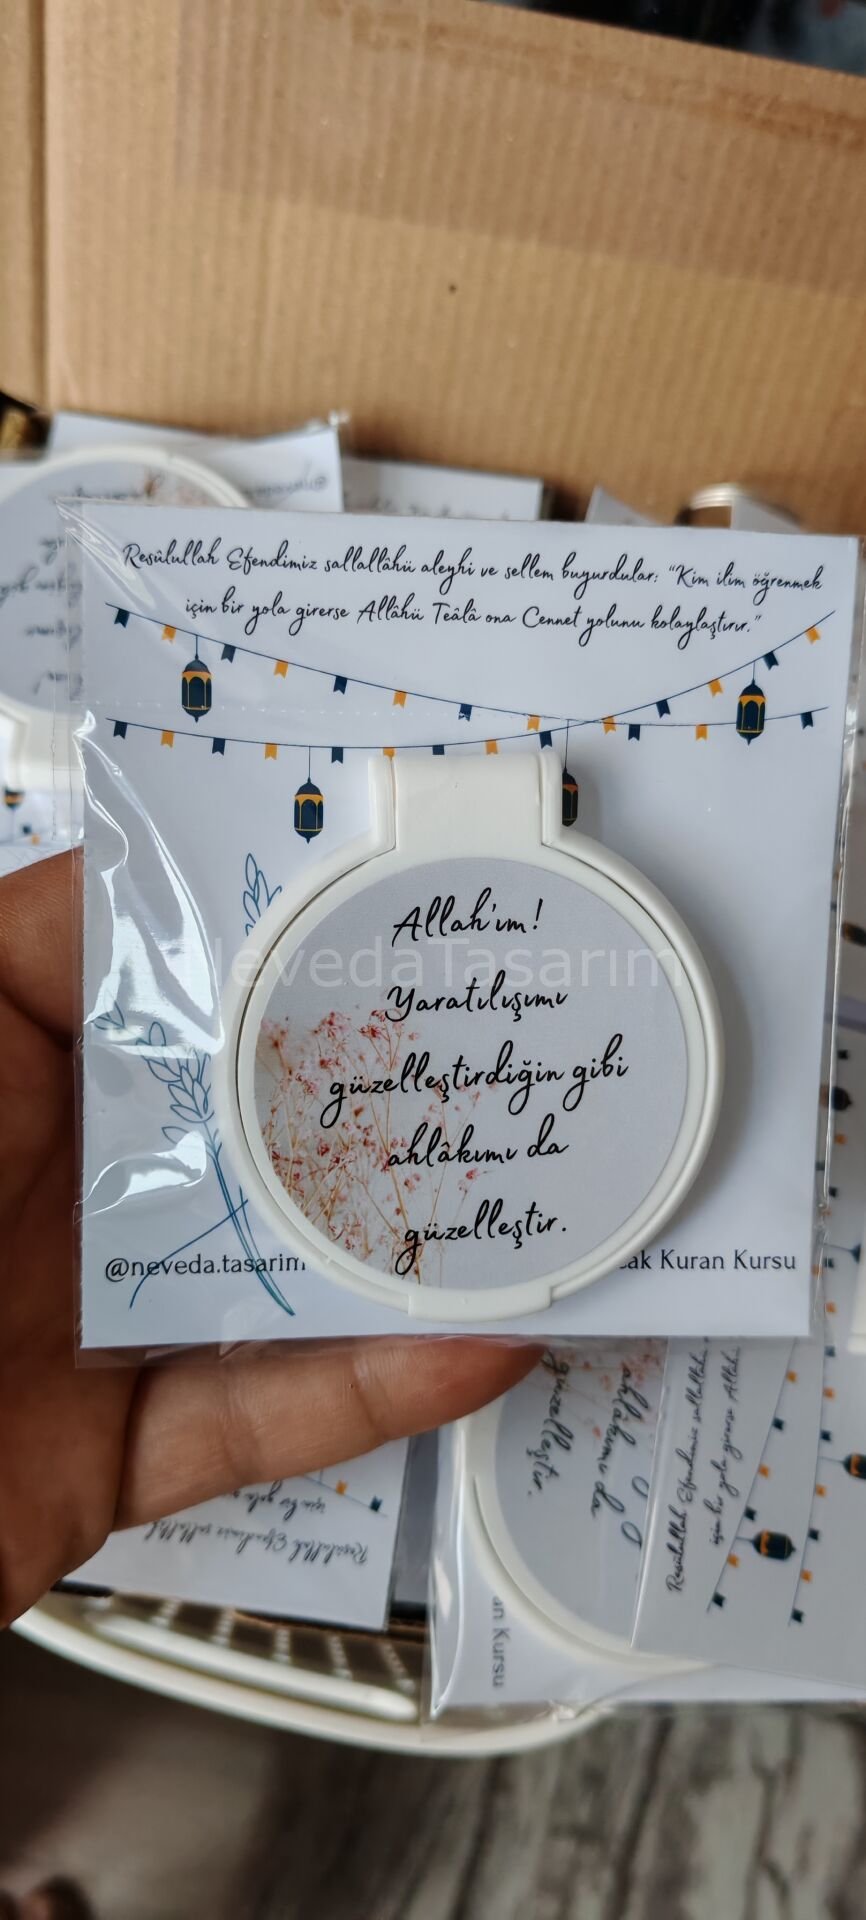 Resûlullah Efendimiz sallallâhü aleyhi ve sellem buyurdular: "Kim ilim öğrenmek
için bir yola girerse Allâhü Teâlâ ona Cennet yolunu kolaylaştırır."
Allah'ım!
NevedaTasarim
Yaratılışımı
güzelleştirdiğin gibi
ahlâkımı da
güzelleştir.
@neveda.tasarim
Kuran Kursu
ahlâkımı da
güzelleştir.
Resûlullah Efendimiz sallallâhü
için bir yola girerse Allâhü
Resûlullah Efendimiz
için bir yola
Kursu